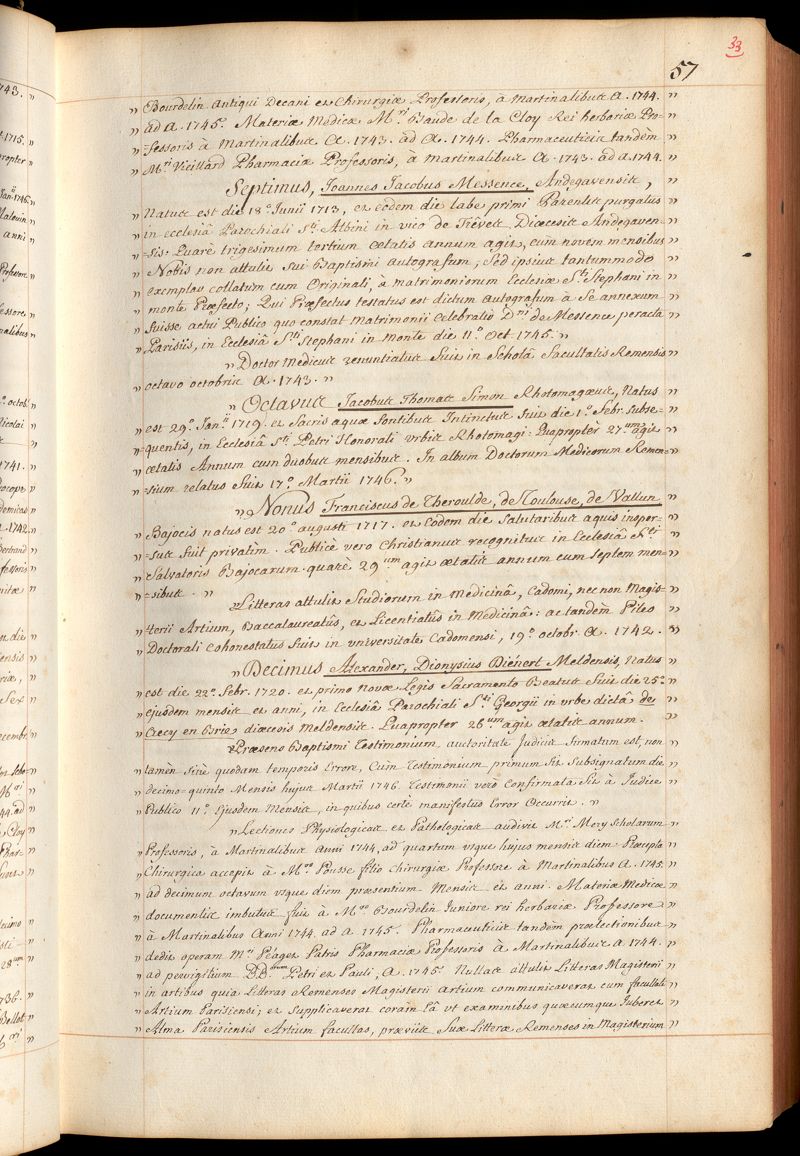 33
57
" Bourdelin antiqui Decani et Chirurgiæ Professoris, à Martinalibus A. 1744. "
" ad A. 1745. Materiæ Medicæ M.ri Baude de la Cloy Rei herbariæ Pro= "
" =fessoris à Martinalibus A. 1743. ad A. 1744. Pharmaceuticis tandèm "
" M.ri Vieillard Pharmaciæ Professoris, à Martinalibus A. 1743. ad A. 1744.
Septimus, Joannes Jacobus Messence, Andegavensis, "
" Natus est die 18.º Junii 1713, et eodem die labe primi Parentis purgatus "
" in ecclesiâ Parochiali S.ti Albini in vico de Trêves Diœcesis Andegaven= "
" =sis. Quarè trigesimum tertium ætatis annum agit, cum novem mensibus "
" Nobis non attulit sui Baptismi autografum, Sed ipsius tantummodo "
" exemplar collatum cum Originali, à matrimoniorum Ecclesiæ S.ti Stephani in "
" monte Præfecto; Qui Præfectus testatus est dictum autografum à Se annexum "
" fuisse actui Publico quo constat Matrimonii Celebratio D.ni de Messence peracta "
" Parisiis, in Ecclesiâ S.ti Stephani in Monte die 11.º Oct. 1745. "
" Doctor Medicus renuntiatus fuit in Scholâ Facultatis Remensis "
" octavo octobris A. 1743. "
" Octavus Jacobus Thomas Simon Rhotomagæus, Natus "
" est 29.º Jan.ii 1719. et Sacris aquæ fontibus Intinctus fuit die 1.º Febr. subse= "
" =quentis, in Ecclesiâ S.ti Petri Honorati urbis Rhotomagi. Quapropter 27.um agit "
" ætatis Annum cum duobus mensibus. In album Doctorum Medicorum Remen= "
" =sium relatus fuit 17.º Martii 1746. "
" Nonus Franciscus de Theroulde, de Toulouse, de Vallun "
" Bajocis natus est 20.º augusti 1717. et eodem die Salutaribus aquis insper= "
" =sus fuit privatìm. Publicè vero Christianus recognitus in Ecclesiâ S.ti "
" Salvatoris Bajocarum. quarè 29.um agit ætatis annum cum septem men= "
" =sibus. "
" Litteras attulit Studiorum in medicinâ, Cadomi, nec non Magis= "
" =terii Artium, Baccalaureatûs, et Licentiatûs in Medicinâ: ac tandèm Pileo "
" Doctorali cohonestatus fuit in universitate Cadomensi, 19.º octobr. A. 1742. "
" Decimus Alexander, Dionysius Diénert Meldensis, Natus "
" est die 22.º Febr. 1720. et primo novæ Legis Sacramento Beatus fuit die 25.º "
" ejusdem mensis et anni, in Ecclesiâ Parochiali S.ti Georgii in urbe dictâ de "
" Crecy en Brie diœcesis Meldensis. Quapropter 26.um agit ætatis annum. "
" Præsens Baptismi Testimonium autoritate Judicis firmatum est, non "
" tamèn Sinè quodam temporis Errore, Cum Testimonium primum Sit Subsignatum die "
" decimo=quinto Mensis hujus Martii 1746. Testimonii vero Confirmata Sit à Judice "
" Publico 11.º Ejusdem Mensis, in quibus certè manifestus Error Occurrit. "
" Lectiones Physiologicas et Pathologicas audivit M.ri Mery Scholarum "
" Professoris, à Martinalibus Anni 1744, ad quartum usque hujus mensis diem Præcepta "
" Chirurgica accepit à M.ro Pousse filio Chirurgiæ Professore à Martinalibus A. 1745. "
" ad decimum octavum usque diem præsentium Mensis et anni. Materiæ Medicæ "
" documentis imbutus fuit à M.ro Bourdelin Juniore rei herbariæ Professore "
" à Martinalibus Anni 1744. ad A. 1745. Pharmaceuticis tandèm prælectionibus "
" dedit operam M.ri Péaget Patris Pharmaciæ Professoris à Martinalibus A. 1744. "
" ad pervigilium BB.orum Petri et Pauli, A. 1745. Nullas attulit Litteras Magisterii "
" in artibus quia Litteras Remenses Magisterii Artium communicaverat cum facultate "
" Artium Parisiensi; et Supplicaverat coràm Eâ ut examinibus quæcumque Juberet "
" Alma Parisiensis Artium facultas, præviis Suæ Litteræ Remenses in Magisterium "